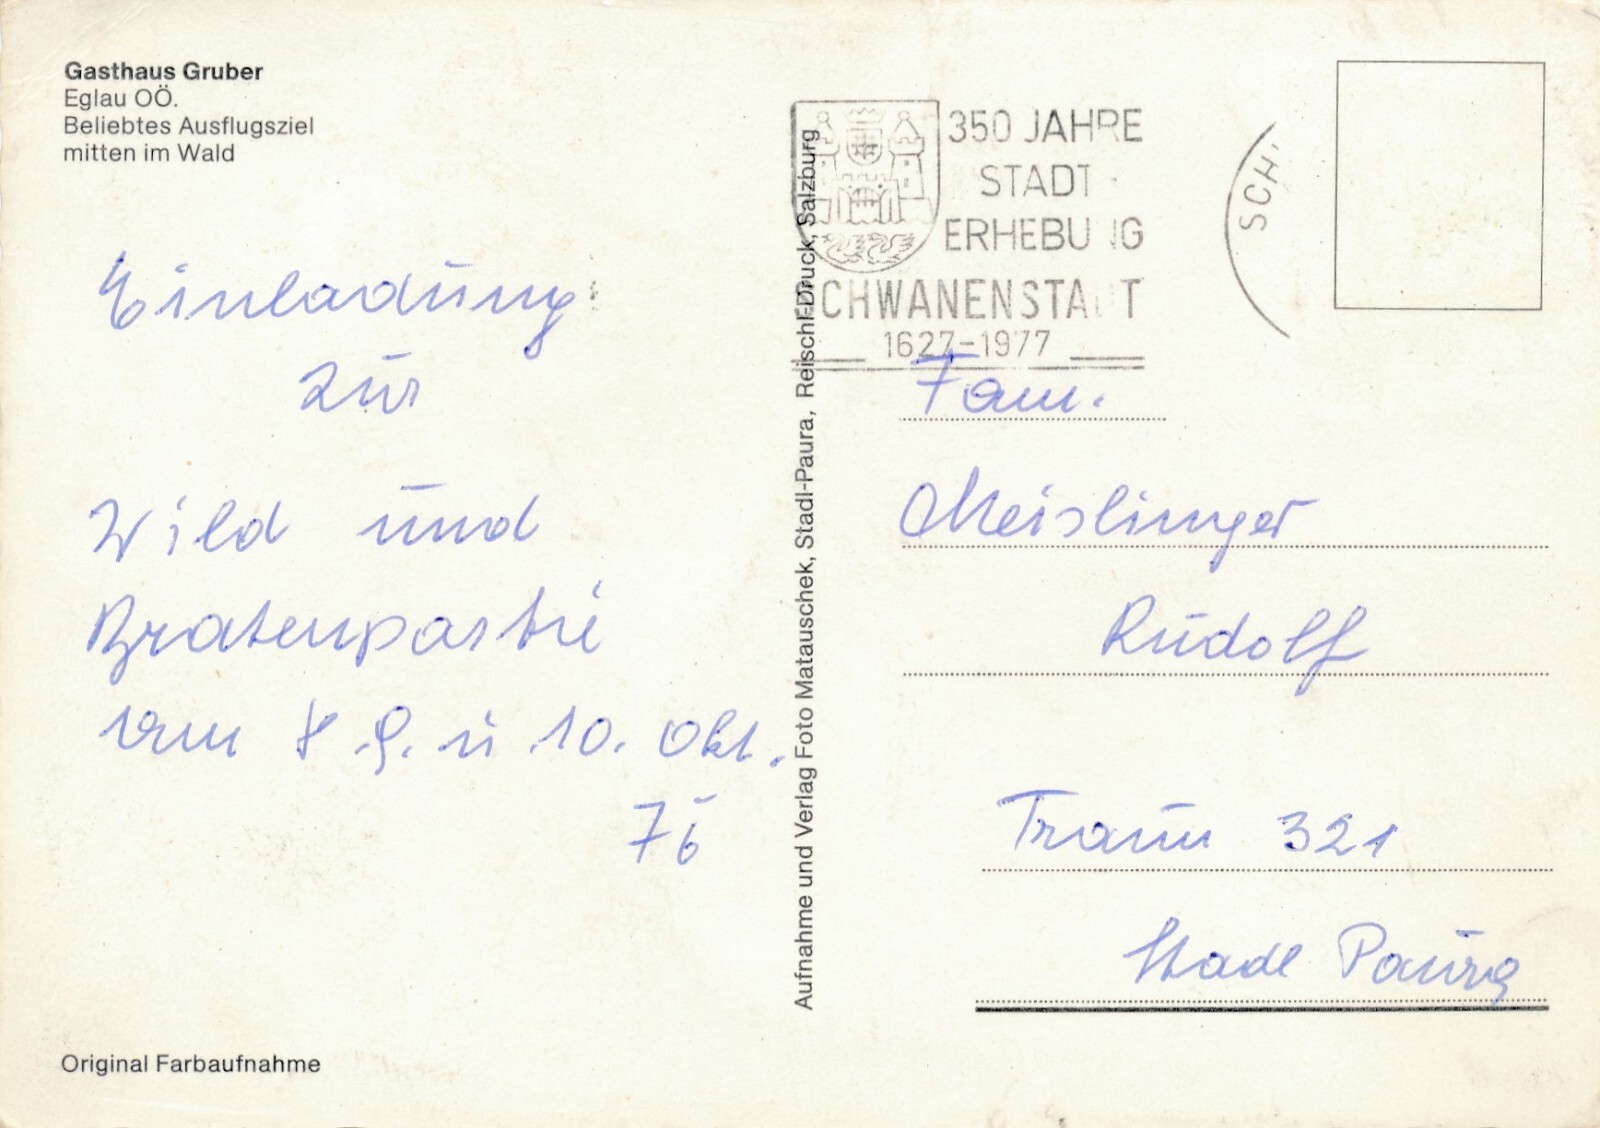 Gasthaus Gruber
Eglau OÖ.
Beliebtes Ausflugsziel
mitten im Wald
Einladung
zur
Wild und
Bratenpartie
vom 8. 9. u 10. Okt.
76
Original Farbaufnahme
Aufnahme und Verlag Foto Matauschek, Stadl-Paura, Reischl-Druck, Salzburg
350 JAHRE
STADT-
ERHEBUNG
SCHWANENSTADT
1627-1977
SCH
Fam.
Meislinger
Rudolf
Traun 321
Stadl Paura